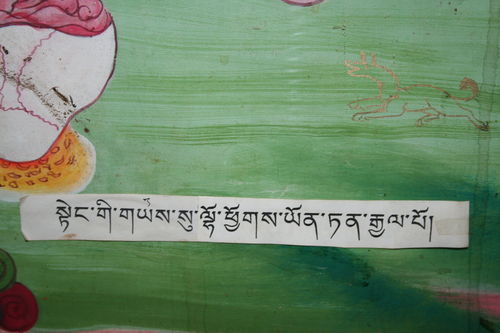 སྟེང་གི་གཡས་སུ་ལྷོ་ཕྱོགས་ཡོན་ཏན་རྒྱལ་པོ།